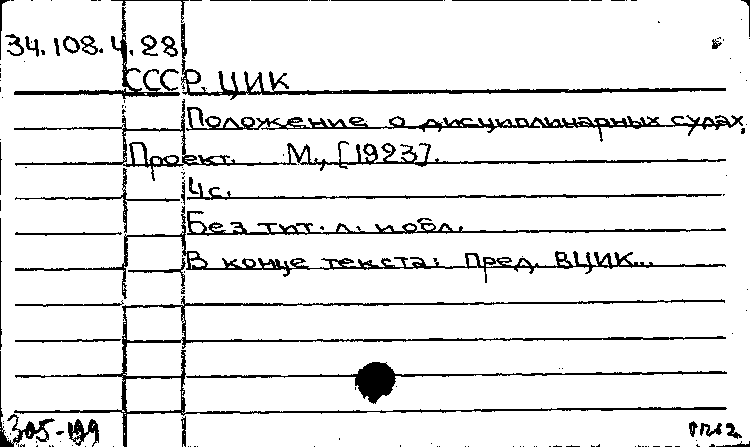 34.108.4.28
СССР. ЦИК
Положение о дисциплинарных судах.
Проект. М., [1923].
4с.
Без тит. л. и обл.
В конце текста: Пред. ВЦИК...
305-199